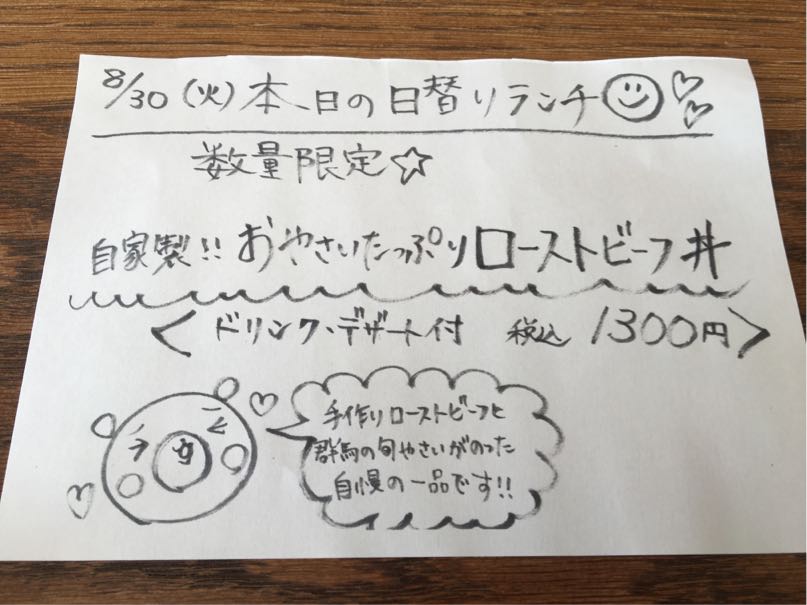 8/30(火)本日の日替りランチ
数量限定☆
自家製!!おやさいたっぷりローストビーフ丼
<ドリンク、デザート付 税込 1300円>
手作りローストビーフと
群馬の旬やさいがのった
自慢の一品です!!